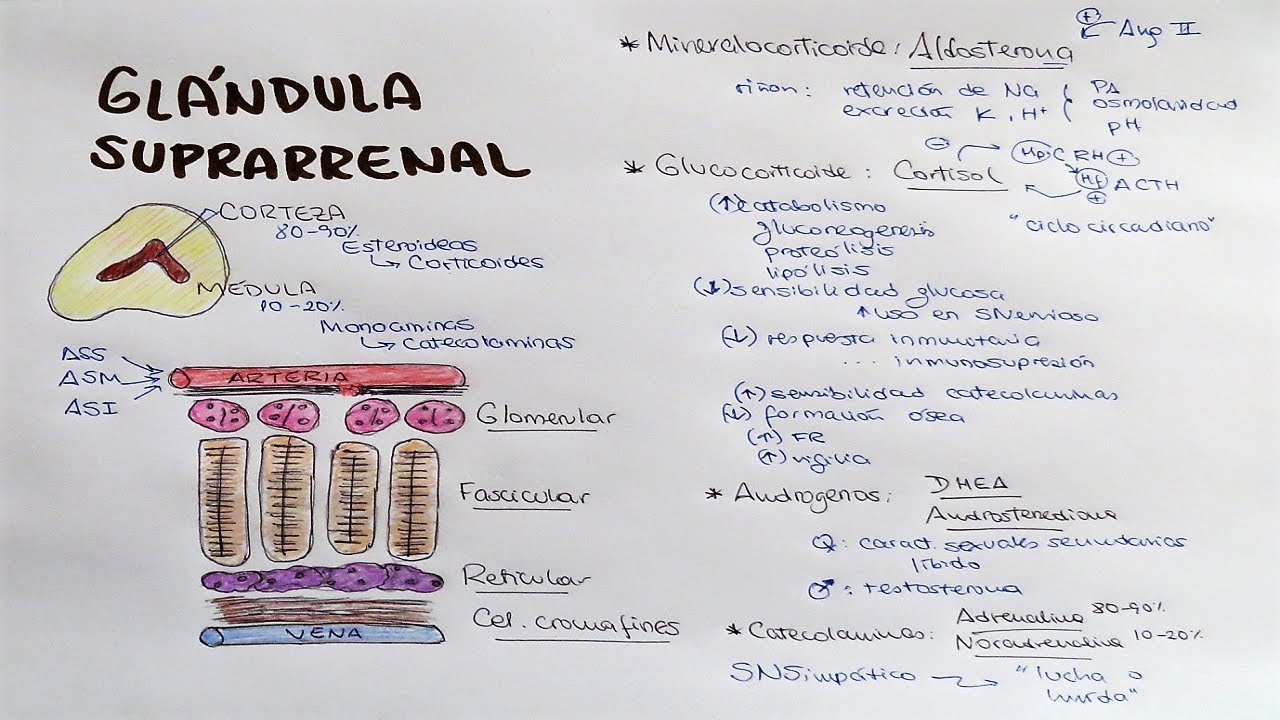 GLÁNDULA
SUPRARRENAL
CORTEZA
80-90%
Esteroideas
↳ Corticoides
MÉDULA
10-20%
Monoaminas
↳ Catecolaminas
ASS
ASM
ASI
ARTERIA
Glomerular
Fascicular
Reticular
Cel. cromafines
VENA
* Mineralocorticoide: Aldosterona
(+) Ang II
riñon: retención de Na
excreción K, H+
PA
osmolaridad
pH
* Glucocorticoide: Cortisol
(-) Hp CRH (+)
Hf ACTH
(+)
"ciclo circadiano"
(↑) catabolismo
gluconeogenesis
proteólisis
lipólisis
(↓) sensibilidad glucosa
↑ uso en SNervioso
(↓) respuesta inmunitaria
... inmunosupresión
(↑) sensibilidad catecolaminas
(↓) formación ósea
(↑) FR
(↑) vigilia
* Andrógenos: DHEA
Androstenediona
♀: caract. sexuales secundarios
líbido
♂: testosterona
* Catecolaminas: Adrenalina 80-90%
Noradrenalina 10-20%
SNSimpático → "lucha o
huida"